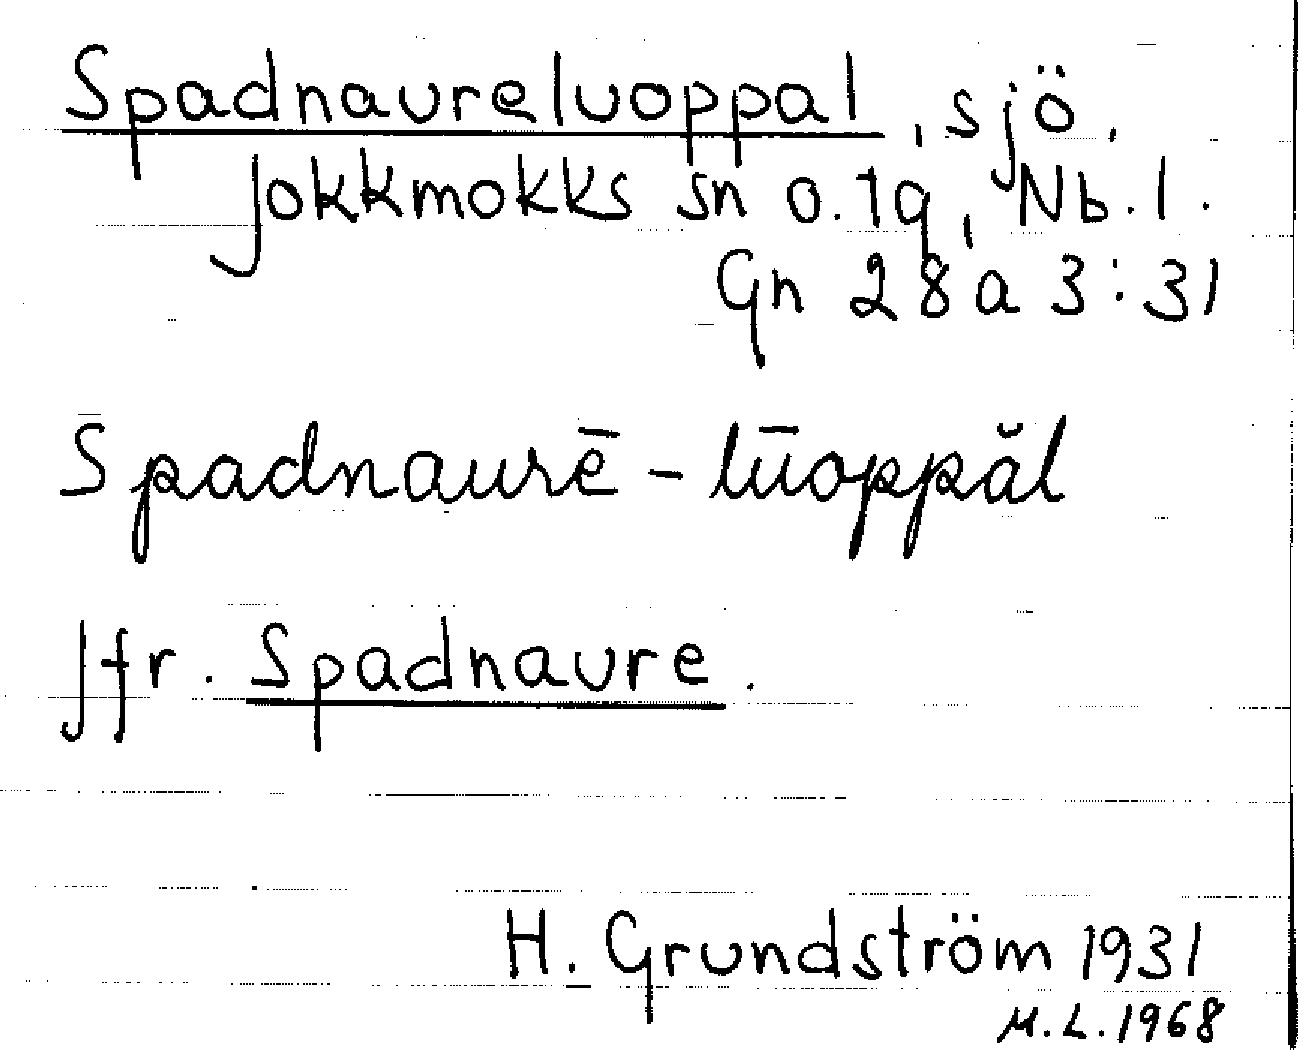 Spadnaureluoppal, sjö,
Jokkmokks sn o. lq, Nb. l.
Gn 28 a 3:31
Spadnaurē - lūoppăl
Jfr. Spadnaure.
H. Grundström 1931
M.L. 1968